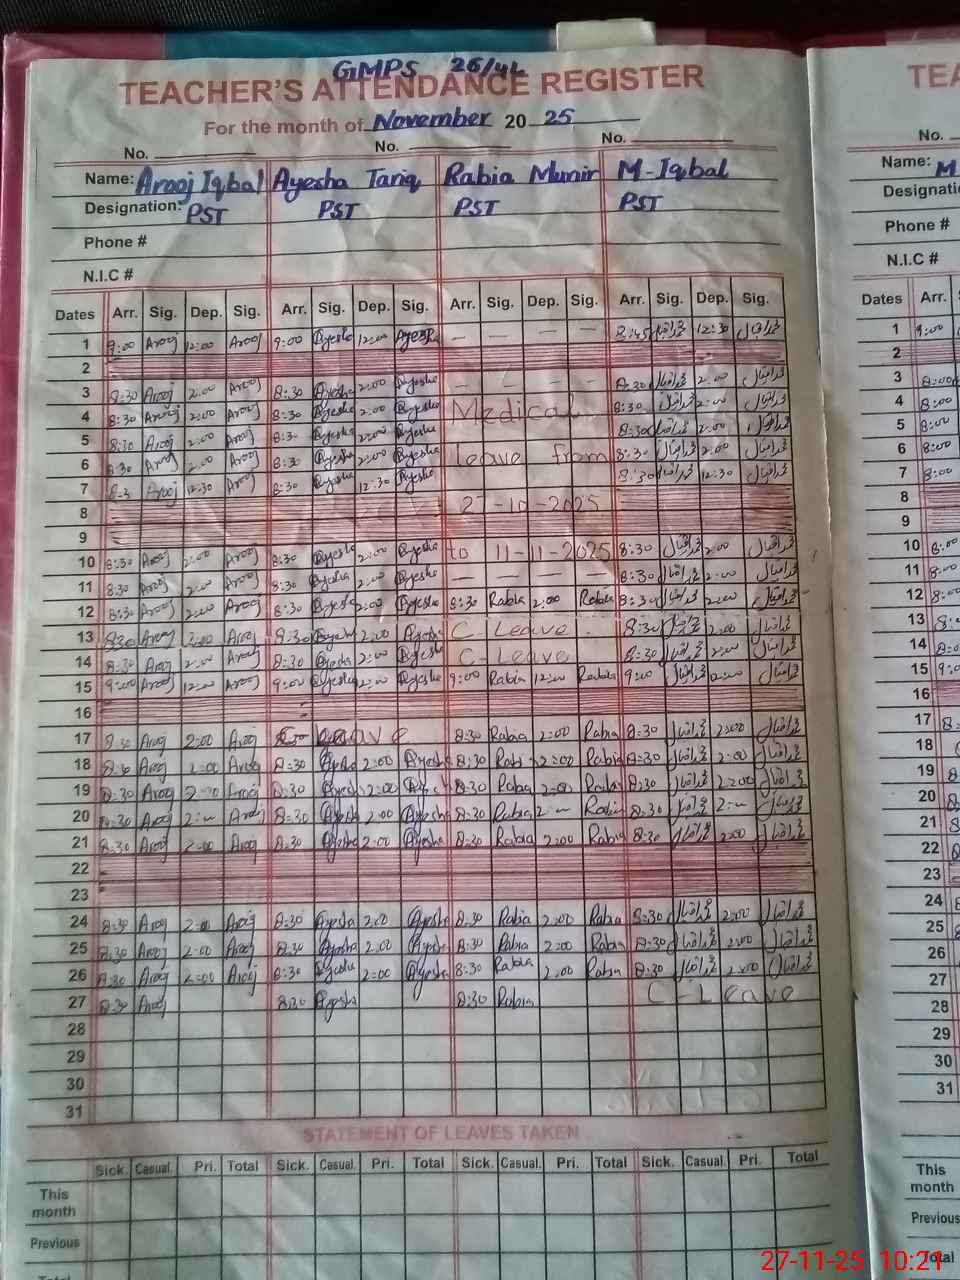 GMPS 26/4L
TEACHER'S ATTENDANCE REGISTER
For the month of November 20 25
No. No. No.
Name: Arooj Iqbal Ayesha Tariq Rabia Munir M-Iqbal
Designation: PST PST PST PST
Phone #
N.I.C #
Dates Arr. Sig. Dep. Sig. Arr. Sig. Dep. Sig. Arr. Sig. Dep. Sig. Arr. Sig. Dep. Sig.
1 9:00 Arooj 12:00 Arooj 9:00 Ayesha 12:00 Ayesha — — — — 8:45 محمد اقبال 12:30 محمد اقبال
2
3 8:30 Arooj 2:00 Arooj 8:30 Ayesha 2:00 Ayesha — — — — 8:30 محمد اقبال 2:00 محمد اقبال
4 8:30 Arooj 2:00 Arooj 8:30 Ayesha 2:00 Ayesha Medical 8:30 محمد اقبال 2:00 محمد اقبال
5 8:30 Arooj 2:00 Arooj 8:30 Ayesha 2:00 Ayesha 8:30 محمد اقبال 2:00 محمد اقبال
6 8:30 Arooj 2:00 Arooj 8:30 Ayesha 2:00 Ayesha leave from 8:30 محمد اقبال 2:00 محمد اقبال
7 Arooj 12:30 Arooj 8:30 Ayesha 12:30 Ayesha 8:30 محمد اقبال 12:30 محمد اقبال
8 27-10-2025
9
10 8:30 Arooj 2:00 Arooj 8:30 Ayesha 2:00 Ayesha to 11-11-2025 8:30 محمد اقبال 2:00 محمد اقبال
11 8:30 Arooj 2:00 Arooj 8:30 Ayesha 2:00 Ayesha — — — — 8:30 محمد اقبال 2:00 محمد اقبال
12 8:30 Arooj 2:00 Arooj 8:30 Ayesha 2:00 Ayesha 8:30 Rabia 2:00 Rabia 8:30 محمد اقبال 2:00 محمد اقبال
13 8:30 Arooj 2:00 Arooj 8:30 Ayesha 2:00 Ayesha C-Leave 8:30 محمد اقبال 2:00 محمد اقبال
14 8:30 Arooj 2:00 Arooj 8:30 Ayesha 2:00 Ayesha C-Leave 8:30 محمد اقبال 2:00 محمد اقبال
15 9:00 Arooj 12:00 Arooj 9:00 Ayesha 12:00 Ayesha 9:00 Rabia 12:00 Rabia 9:00 محمد اقبال 12:00 محمد اقبال
16
17 8:30 Arooj 2:00 Arooj Leave 8:30 Rabia 2:00 Rabia 8:30 محمد اقبال 2:00 محمد اقبال
18 Arooj 2:00 Arooj 8:30 Ayesha 2:00 Ayesha 8:30 Rabia 2:00 Rabia 8:30 محمد اقبال 2:00 محمد اقبال
19 8:30 Arooj 2:00 Arooj 8:30 Ayesha 2:00 8:30 Rabia 2:00 Rabia 8:30 محمد اقبال 2:00 محمد اقبال
20 8:30 Arooj 2:00 Arooj 8:30 Ayesha 2:00 Ayesha 8:30 Rabia 2:00 Rabia 8:30 محمد اقبال 2:00 محمد اقبال
21 8:30 Arooj 2:00 Arooj 8:30 Ayesha 2:00 Ayesha 8:30 Rabia 2:00 Rabia 8:30 محمد اقبال 2:00 محمد اقبال
22
23
24 8:30 Arooj 2:00 Arooj 8:30 Ayesha 2:00 Ayesha 8:30 Rabia 2:00 Rabia 8:30 محمد اقبال 2:00 محمد اقبال
25 8:30 Arooj 2:00 Arooj 8:30 Ayesha 2:00 Ayesha 8:30 Rabia 2:00 Rabia 8:30 محمد اقبال 2:00 محمد اقبال
26 8:30 Arooj 2:00 Arooj 8:30 Ayesha 2:00 Ayesha 8:30 Rabia 2:00 Rabia 8:30 محمد اقبال 2:00 محمد اقبال
27 8:30 Arooj 8:30 Ayesha 8:30 Rabia C-Leave
28
29
30
31
STATEMENT OF LEAVES TAKEN
Sick. Casual. Pri. Total Sick. Casual. Pri. Total Sick. Casual. Pri. Total Sick. Casual. Pri. Total
This month
Previous
Total
No.
Name: M
Designation
Phone #
N.I.C #
Dates Arr.
1 9:00
2
3 8:00
4 8:00
5 8:00
6 8:00
7 8:00
8
9
10 8:00
11 8:00
12 8:00
13
14 8:00
15 9:00
16
17
18
19
20
21
22
23
24
25
26
27
28
29
30
31
This month
Previous
Total
27-11-25 10:21